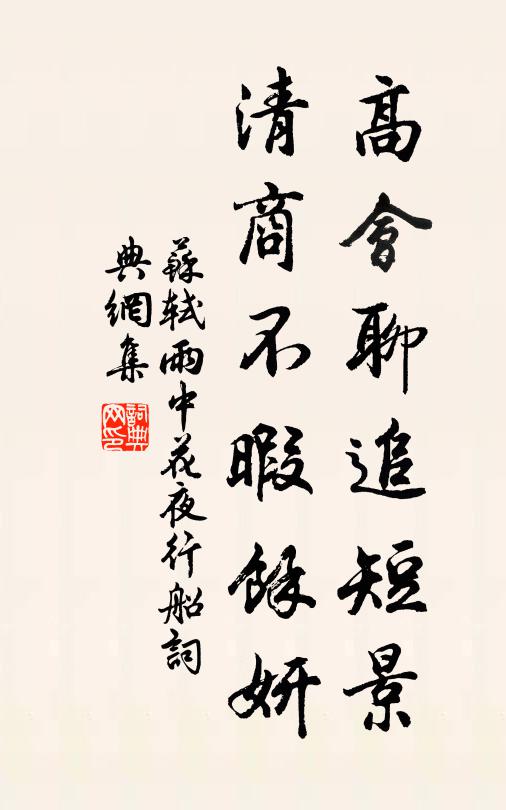 高會聊追短景
清商不暇餘妍
蘇軾雨中花夜行船詞
典網集
詞典网印